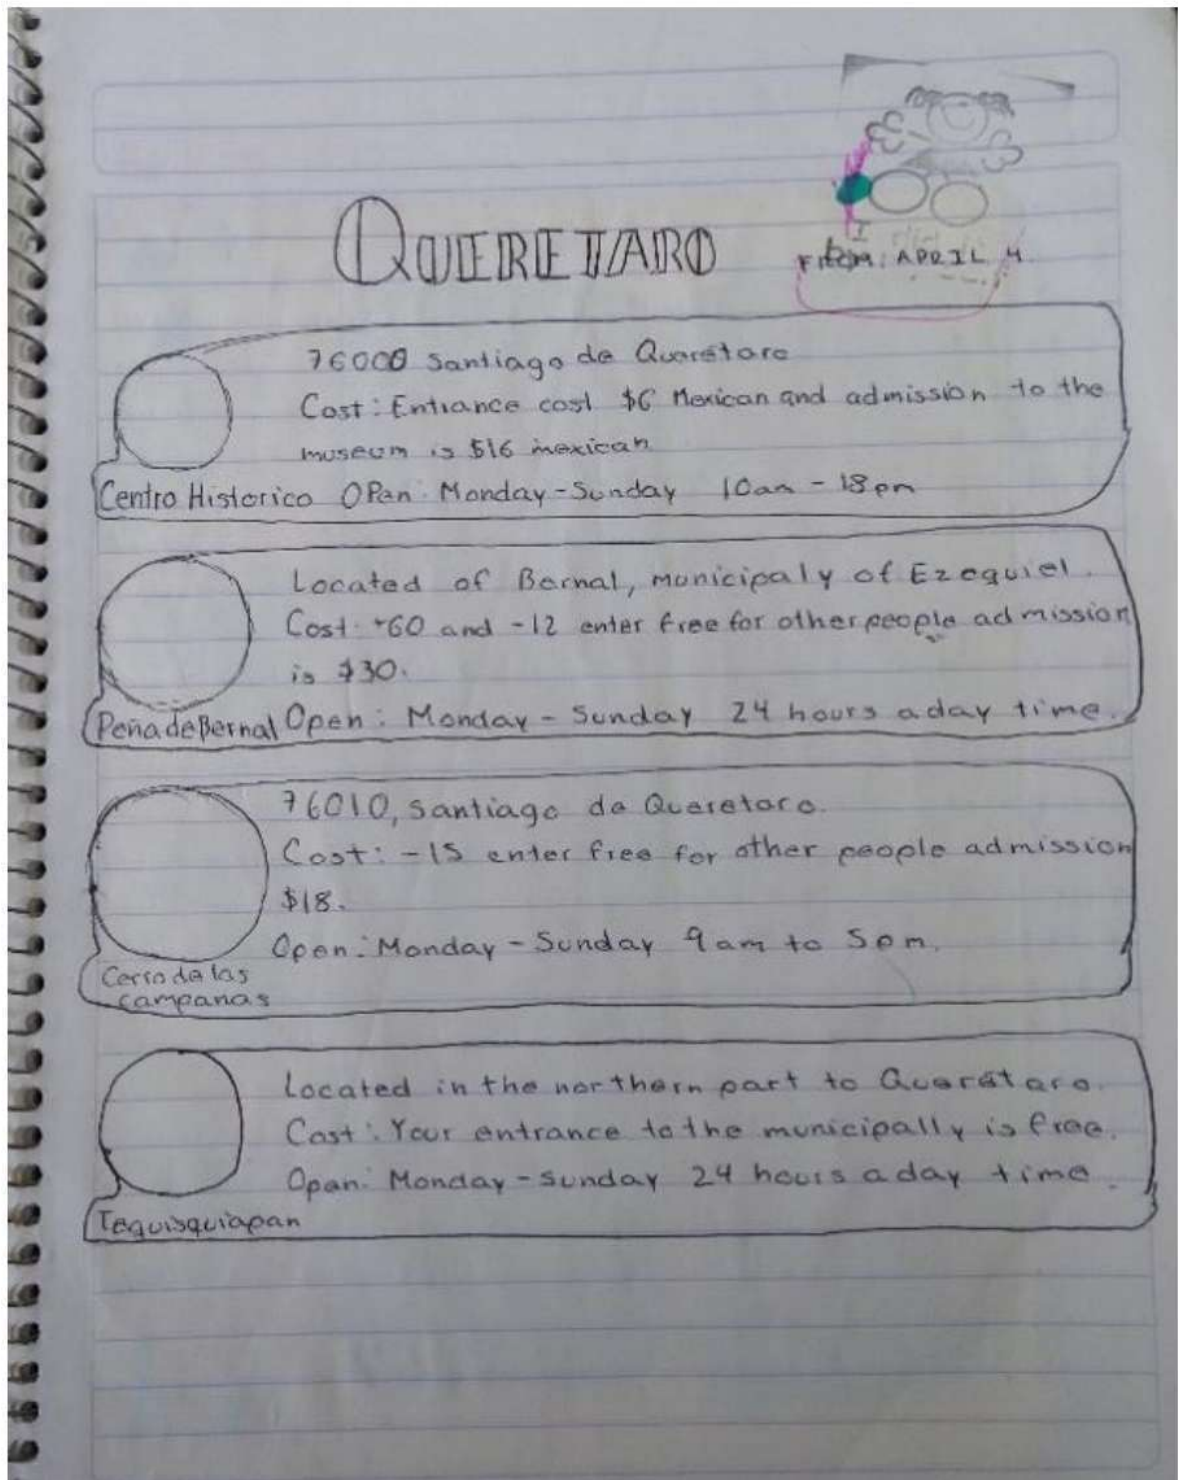 QUERETARO
APRIL 4
76000 Santiago de Querétaro
Cost: Entrance cost $6 Mexican and admission to the
museum is $16 mexican
Centro Historico OPen: Monday-Sunday 10am - 18pm
Located of Bernal, municipaly of Ezequiel.
Cost: +60 and -12 enter free for other people admission
is $30.
Peña de Bernal Open: Monday - Sunday 24 hours a day time.
76010, Santiago de Queretaro.
Cost: -15 enter free for other people admission
$18.
Open: Monday - Sunday 9am to 5pm.
Cerro de las
campanas
Located in the northern part to Querétaro.
Cost: Your entrance to the municipally is free.
Open: Monday - Sunday 24 hours a day time.
Tequisquiapan